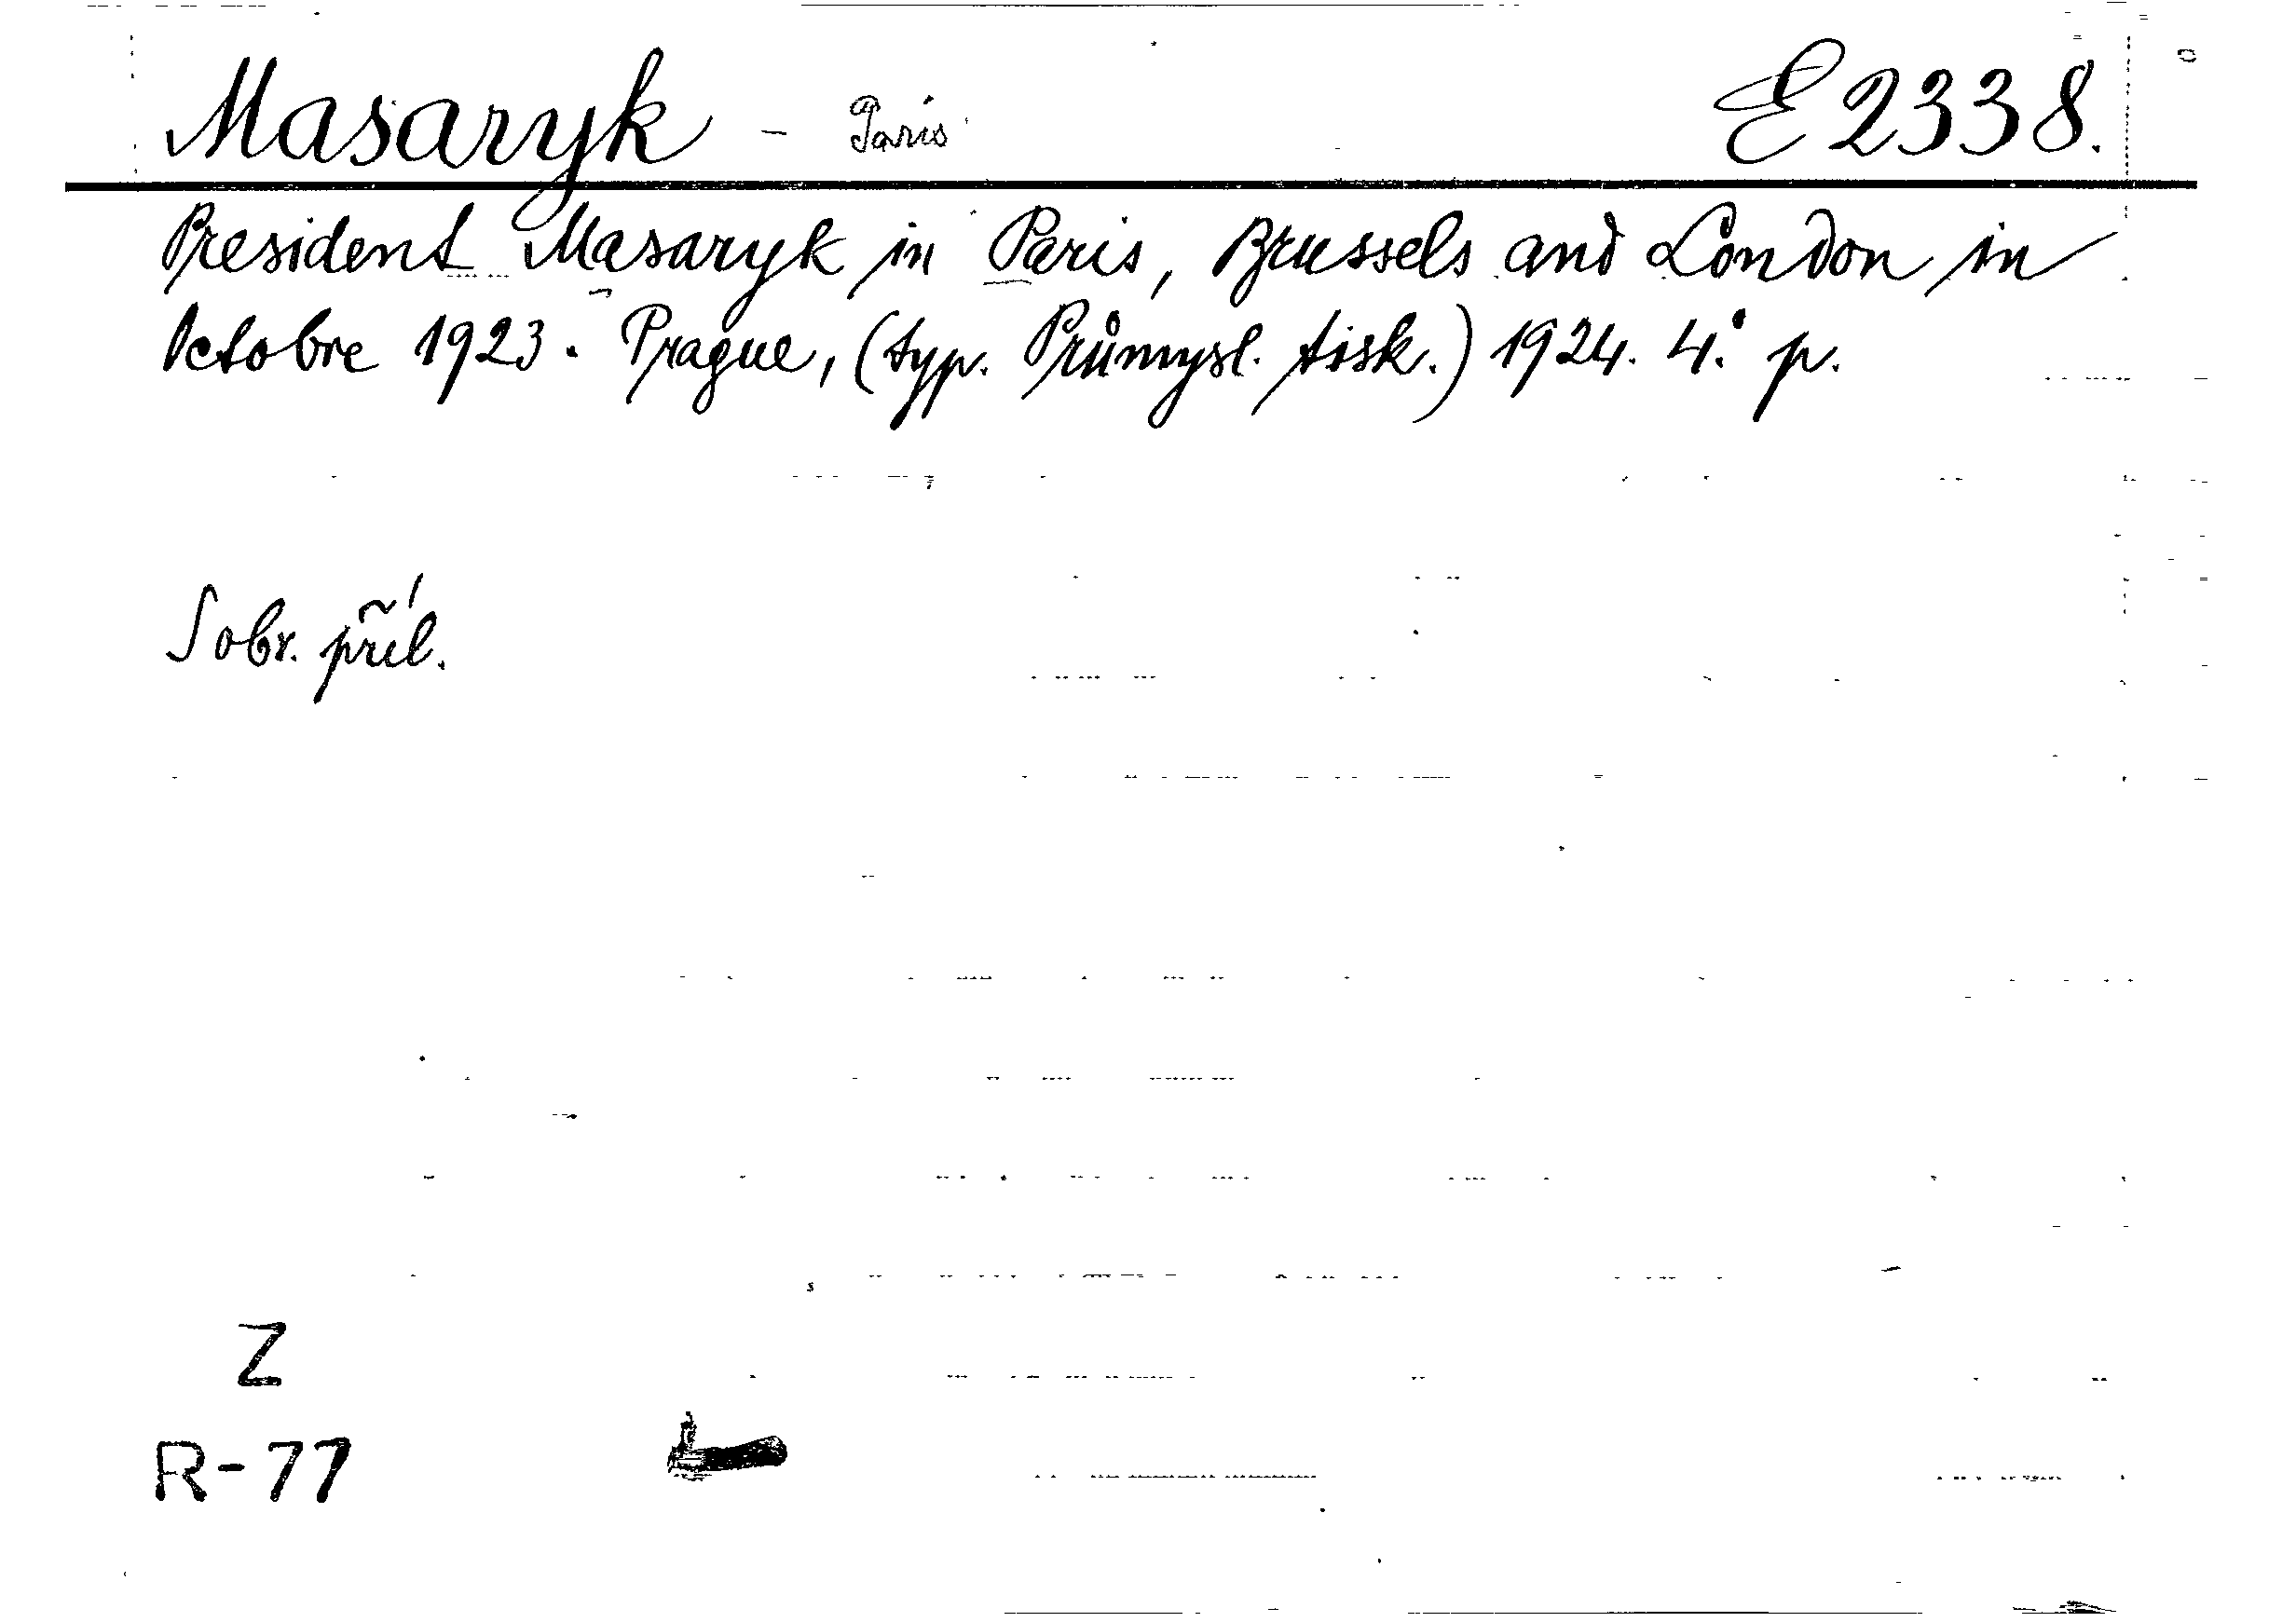 Masaryk - Paris E 2338.
President Masaryk in Paris, Brussels and London in
Octobre 1923. Prague, (typ. Průmysl. tisk.) 1924. 4.° p.
S obr. příl.
Z
R-77